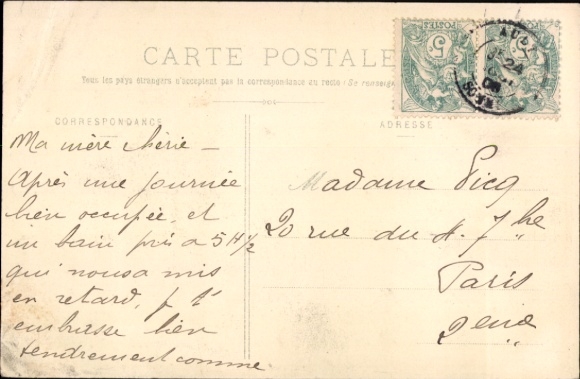 CARTE POSTALE
Tous les pays étrangers n'acceptent pas la correspondance au recto (Se renseigner
CORRESPONDANCE
ADRESSE
Ma mère chérie —
Après une journée
bien occupée, et
un bain pris a 5 H 1/2
qui nous a mis
en retard, je t'
embrasse bien
tendrement comme
Madame Picq
20 rue du 4 7bre
Paris
2eme
POSTES
5
POSTES
5
24
08